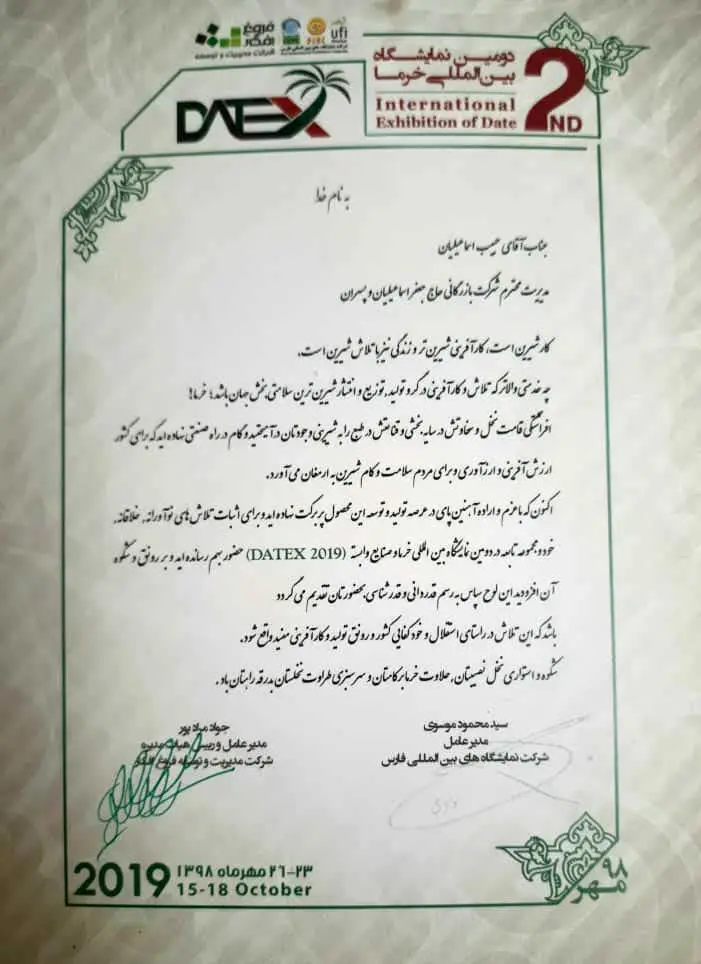 فروغ
افکار
شرکت مدیریت و توسعه
ufi
دومین نمایشگاه
بین‌المللی خرما
International
Exhibition of Date
2ND
DATEX
به نام خدا
جناب آقای حبیب اسماعیلیان
مدیریت محترم شرکت بازرگانی حاج جعفر اسماعیلیان و پسران
کار شیرین است، کارآفرینی شیرین تر و زندگی نیز با تلاش شیرین است.
چه خدمتی والاتر که تلاش و کارآفرینی در گرو تولید, توزیع و افتخار شیرین ترین سلامتی بخش جهان باشد؛ خرما!
افراشتگی قامت نخل و سخاوتش در سایه بخشی و قناعتش در طبع را به شیرینی وجودتان درآمیختید و گام در راه صنعتی نهاده اید که برای کشور
ارزش آفرینی و ارزآوری و برای مردم سلامت و کام شیرین به ارمغان می آورد.
اکنون که با عزم و اراده آهنین پای در عرصه تولید و توسعه این محصول پر برکت نهاده اید و برای اثبات تلاش های نوآورانه, خلاقانه,
خود و مجموعه تابعه در دومین نمایشگاه بین المللی خرما و صنایع وابسته (DATEX 2019) حضور بهم رسانده اید و بر رونق و شکوه
آن افزودید این لوح سپاس به رسم قدردانی و قدرشناسی بحضورتان تقدیم می گردد
باشد که این تلاش در راستای استقلال و خودکفایی کشور و رونق تولید و کارآفرینی مفید واقع شود.
شکوه و استواری نخل نصیبتان, حلاوت خرما بر کامتان و سرسبزی طراوت نخلستان بدرقه راهتان باد.
سید محمود موسوی
مدیر عامل
شرکت نمایشگاه های بین المللی فارس
جواد مراد پور
مدیر عامل و رییس هیات مدیره
شرکت مدیریت و توسعه فروغ افکار
2019
۲۳-۲۶ مهرماه ۱۳۹۸
15-18 October
۹۸
مهر